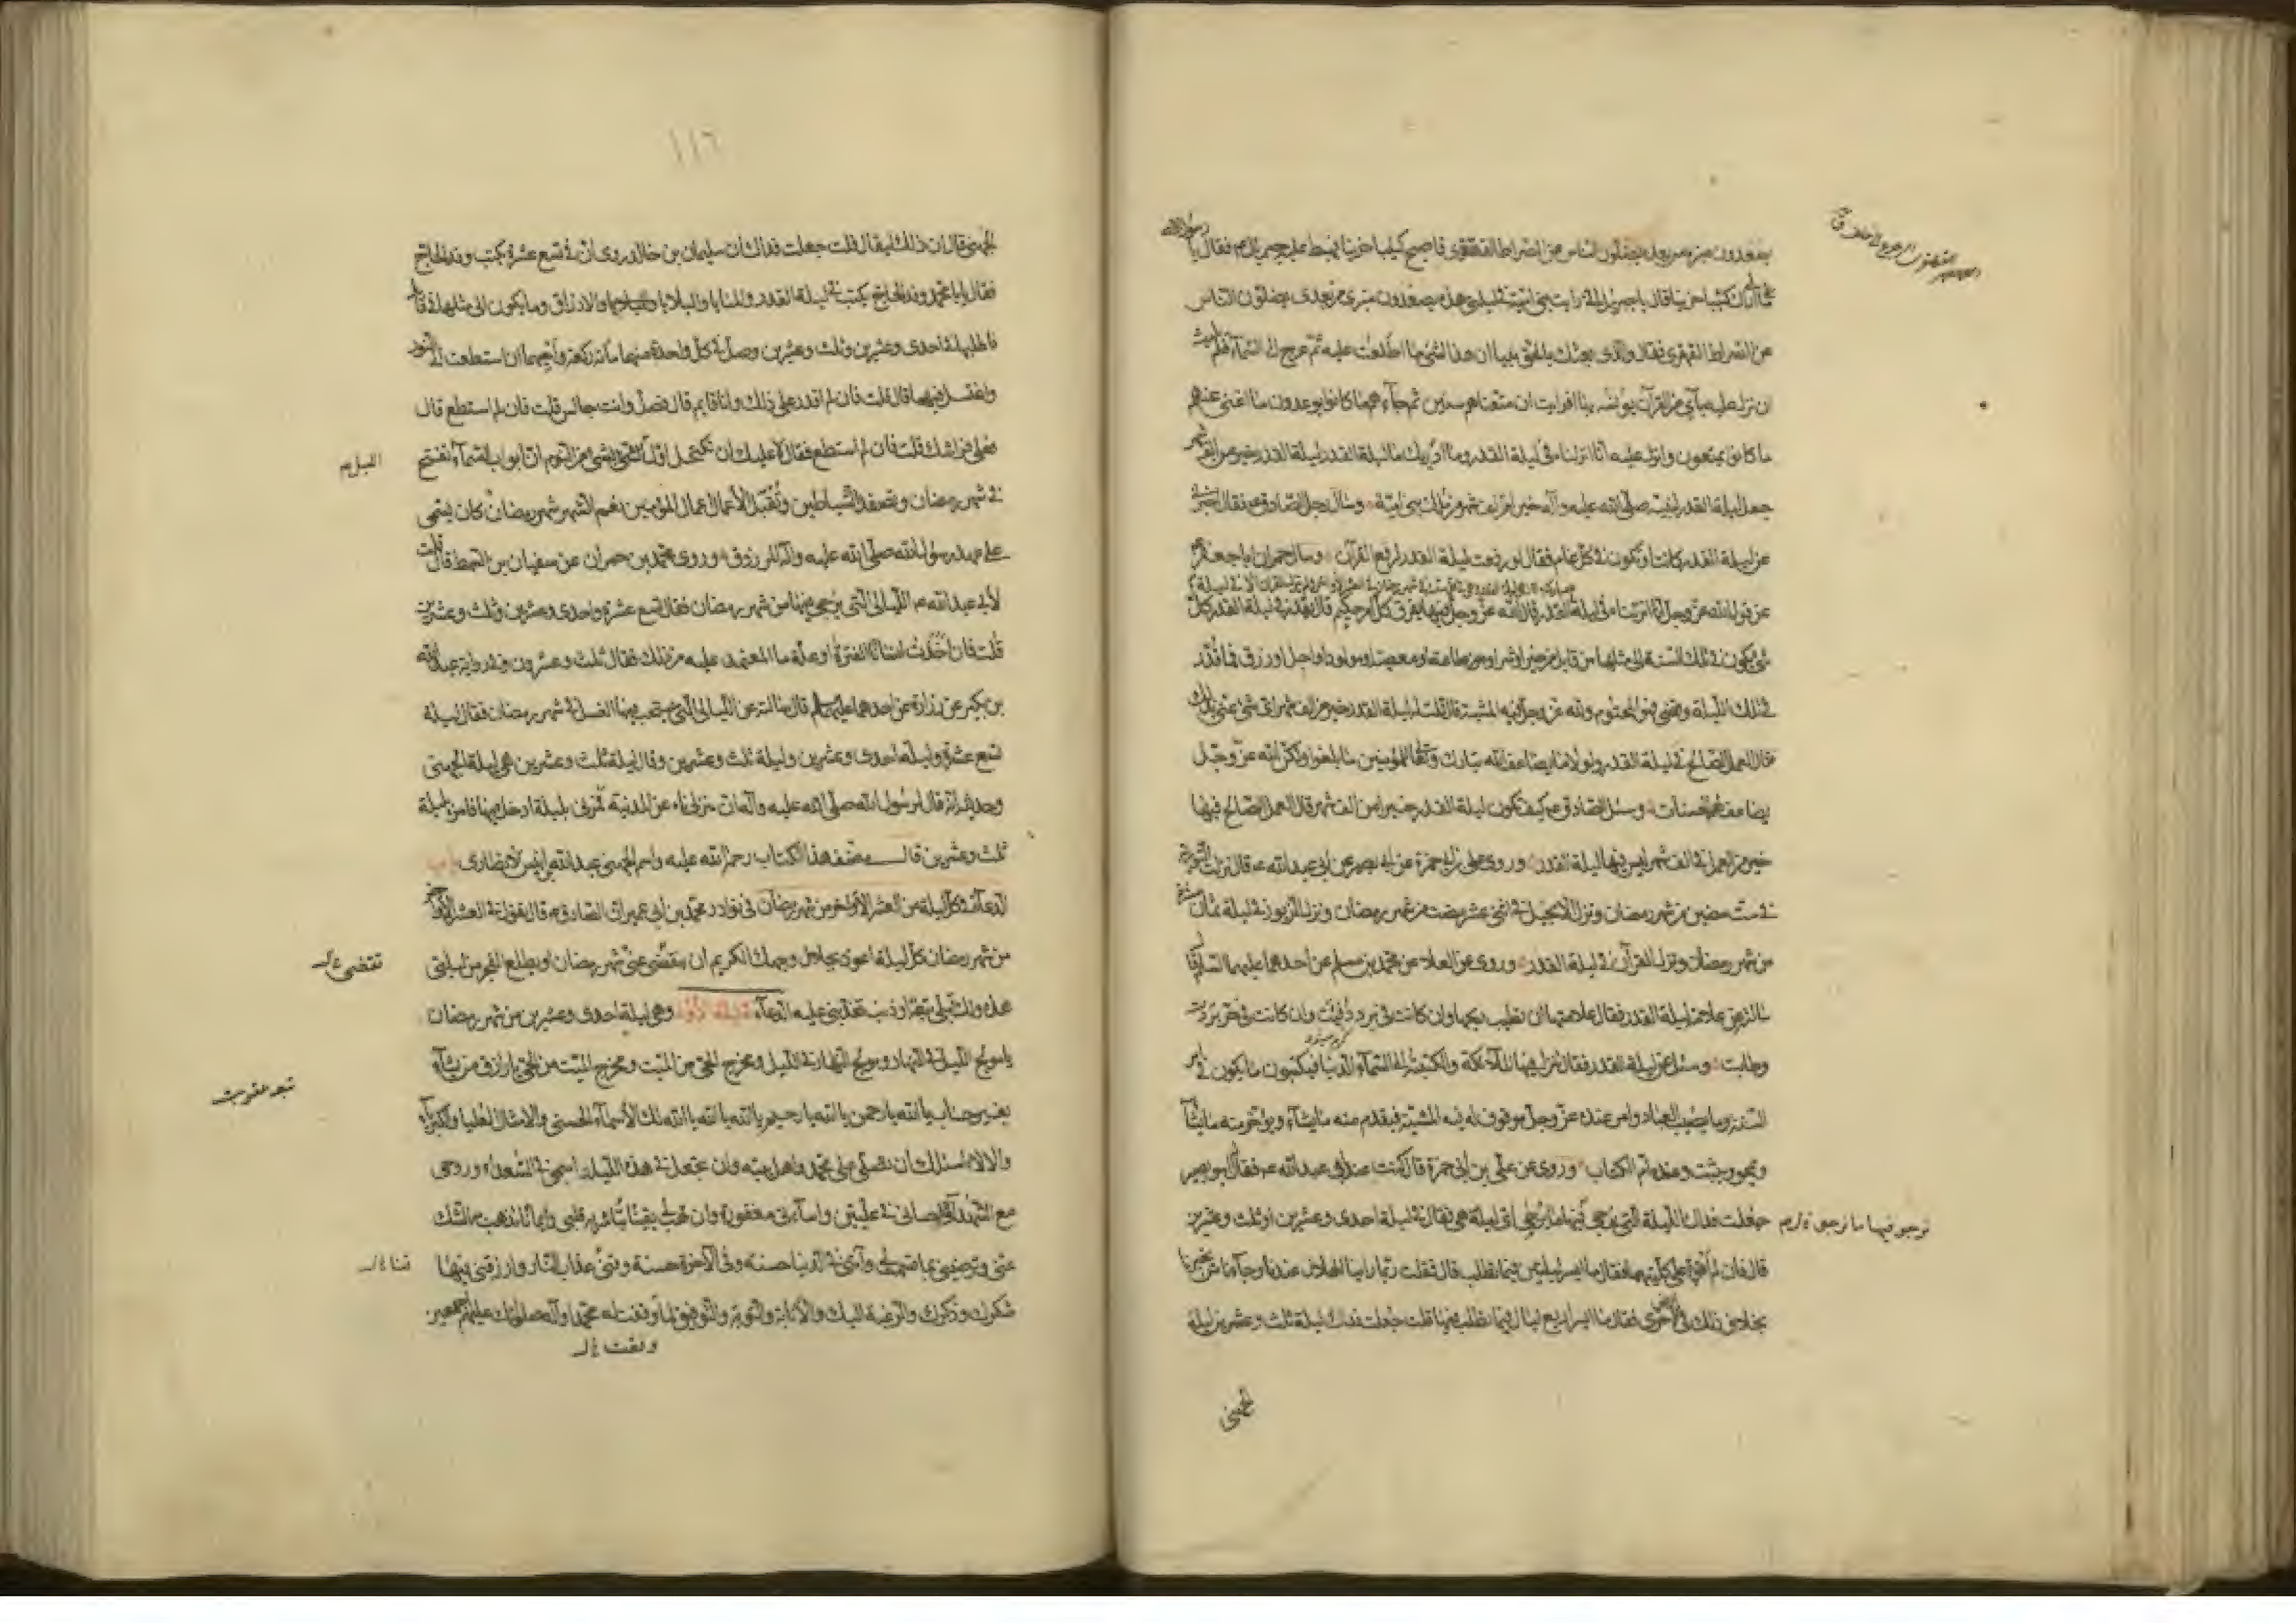 يصعدون منبره من بعده يضلون الناس عن الصراط القهقرى فاصبح كئيبا حزينا فهبط عليه جبرئيل ع فقال يا رسول الله
مالى اراك كئيبا حزينا قال يا جبرئيل انى رايت بنى امية فى ليلتى هذه يصعدون منبرى من بعدى يضلون الناس
عن الصراط القهقرى فقال والذى بعثك بالحق نبيا ان هذا الشئ ما اطلعت عليه ثم عرج الى السماء فلم يلبث
ان نزل عليه بآى من القرآن يونسه بها افرايت ان متعناهم سنين ثم جاءهم ما كانوا يوعدون ما اغنى عنهم
ما كانوا يمتعون وانزل عليه انا انزلناه فى ليلة القدر وما ادريك ما ليلة القدر ليلة القدر خير من الف شهر
جعل ليلة القدر لنبيه صلى الله عليه وآله خيرا من الف شهر من ملك بنى امية وسال رجل الصادق ع فقال اخبرنى
عن ليلة القدر كانت او تكون فى كل عام فقال لو رفعت ليلة القدر لرفع القرآن وسال حمران ابا جعفر ع
عن قول الله عز وجل انا انزلناه فى ليلة
القدر قال الله عز وجل فيها يفرق كل امر حكيم قال يقدر فى ليلة القدر كل
شئ يكون فى تلك السنة الى مثلها من قابل من خير او شر او طاعة او معصية او مولود او اجل او رزق فما قدر
فى تلك الليلة وقضى فهو المحتوم ولله عز وجل فيه المشية قال قلت له ليلة القدر خير من الف شهر اى شئ عنى بذلك
قال العمل الصالح فى ليلة القدر ولولا ما يضاعف الله تبارك وتعالى للمؤمنين ما بلغوا ولكن الله عز وجل
يضاعف لهم الحسنات وسئل الصادق ع كيف تكون ليلة القدر خيرا من الف شهر قال العمل الصالح فيها
خير من العمل فى الف شهر ليس فيها ليلة القدر وروى على بن ابى حمزة عن ابى بصير عن ابى عبد الله ع قال نزلت التورية
فى ست مضين من شهر رمضان ونزل الانجيل فى اثنى عشر مضت من شهر رمضان ونزل الزبور فى ليلة ثمان عشر
من شهر رمضان ونزل القرآن فى ليلة القدر وروى عن العلا عن محمد بن مسلم عن احدهما عليهما السلام قال
سالته عن علامة ليلة القدر فقال علامتها ان تطيب ريحها وان كانت فى برد دفئت وان كانت فى حر بردت
وطابت وسئل عن ليلة القدر فقال تنزل فيها الملائكة والكتبة الى السماء الدنيا فيكتبون ما يكون فى امر
السنة وما يصيب العباد وامر عنده عز وجل موقوف له فيه المشية فيقدم منه ما يشاء ويؤخر منه ما يشاء
ويمحو ويثبت وعنده ام الكتاب وروى عن على بن ابى حمزة قال كنت عند ابى عبد الله ع فقال ابو بصير
جعلت فداك الليلة التى يرجى فيها ما يرجى اى ليلة هى فقال فى ليلة احدى وعشرين او ثلث وعشرين
نرجو فيها ما نرجو
قال فان لم اقو على كلتيهما فقال ما ايسر ليلتين فيما تطلب قال فقلت ربما راينا الهلال عندنا وجاءنا من يخبرنا
بخلاف ذلك فى ارض اخرى فقال ما ايسر اربع ليال فيما تطلب فيها قلت جعلت فداك ليلة ثلث وعشرين ليلة
الجهنى
١١٦
الجهنى قال ان ذلك ليقال قلت جعلت فداك ان سليمان بن خالد روى ان فى تسع عشرة يكتب وفد الحاج
فقال يا با محمد وفد الحاج يكتب فى ليلة القدر والمنايا والبلايا والارزاق وما يكون الى مثلها فى قابل
فاطلبها فى احدى وعشرين وثلث وعشرين وصل فى كل واحدة منهما مائة ركعة واحيهما ان استطعت الى النور
واغتسل فيهما قال قلت فان لم اقدر على ذلك وانا قايم قال فصل وانت جالس قلت فان لم استطع قال
فعلى فراشك قلت فان لم استطع فقال لا عليك ان تكتحل اول الليل بشئ من النوم ان ابواب السماء تفتح
الليل
فى شهر رمضان وتصفد الشياطين وتقبل الاعمال اعمال المؤمنين نعم الشهر شهر رمضان كان يسمى
على عهد رسول الله صلى الله عليه وآله المرزوق وروى محمد بن حمران عن سفيان بن السمط قال قلت
لابى عبد الله ع الليالى التى يرجى فيها من شهر رمضان فقال تسع عشرة واحدى وعشرين وثلث وعشرين
قلت فان اخذت انسانا الفترة او علة ما المعتمد عليه من ذلك فقال ثلث وعشرون وفى رواية عبد الله
بن بكير عن زرارة عن احدهما عليهما السلام قال سالته عن الليالى التى يستحب فيها الغسل فى شهر رمضان فقال ليلة
تسع عشرة وليلة احدى وعشرين وليلة ثلث وعشرين وقال ليلة ثلث وعشرين هى ليلة الجهنى
وحديثه انه قال لرسول الله صلى الله عليه وآله ان منزلى ناء عن المدينة فمرنى بليلة ادخل فيها فامره بليلة
ثلث وعشرين قال مصنف هذا الكتاب رحمة الله عليه واسم الجهنى عبد الله بن انيس الانصارى باب
الدعاء فى كل ليلة من العشر الاواخر من شهر رمضان فى نوادر محمد بن ابى عمير ان الصادق ع قال يقول فى العشر الاواخر
من شهر رمضان كل ليلة اعوذ بجلال وجهك الكريم ان ينقضى عنى شهر رمضان او يطلع الفجر من ليلتى
هذه ولك قبلى تبعة او ذنب تعذبنى عليه الدعاء فى الليلة الاولى وهى ليلة احدى وعشرين من شهر رمضان
يا مولج الليل فى النهار ومولج النهار فى الليل ومخرج الحى من الميت ومخرج الميت من الحى يا رازق من يشاء
بغير حساب يا الله يا رحمن يا الله يا رحيم يا الله يا الله يا الله لك الاسماء الحسنى والامثال العليا والكبرياء
والالاء اسئلك ان تصلى على محمد واهل بيته وان تجعل فى هذه الليلة اسمى فى السعداء وروحى
مع الشهداء واحسانى فى عليين واساءتى مغفورة وان تهب لى يقينا تباشر به قلبى وايمانا يذهب بالشك
عنى وترضينى بما قسمت لى وآتنى فى الدنيا حسنة وفى الآخرة حسنة وقنى عذاب النار وارزقنى فيها
شكرك وذكرك والرغبة اليك والانابة والتوبة والتوفيق لما وفقت له محمدا وآله صلواتك عليهم اجمعين